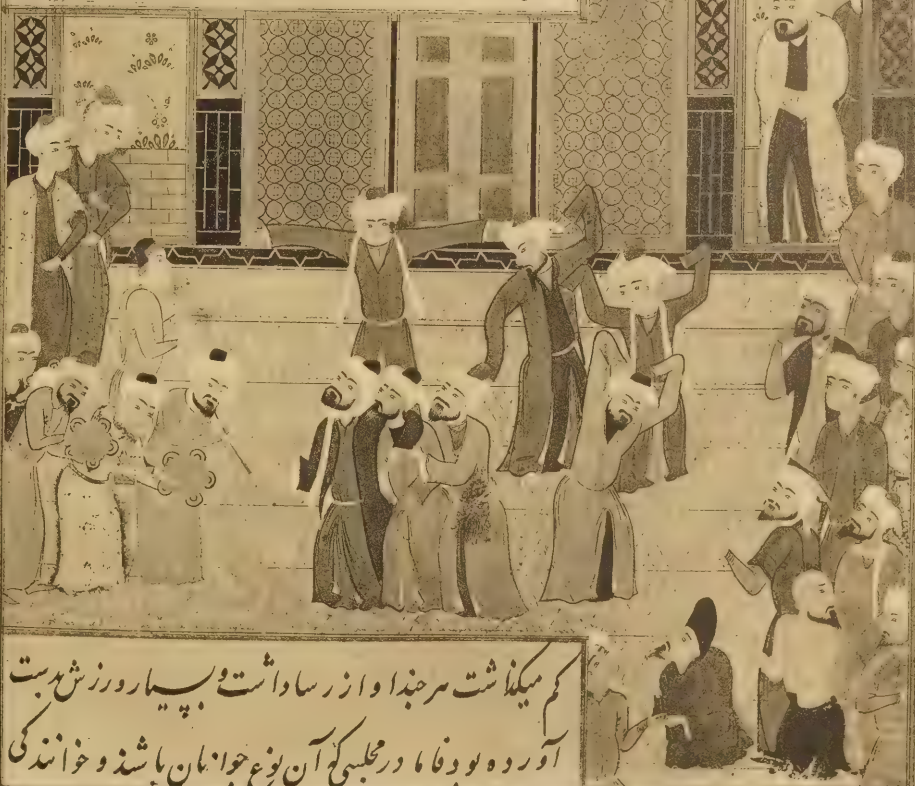 کم میکذاشت هر جند اواز رسا داشت و بسیار ورزش بدست
آورده بود فاما در مجلسی که آن نوع جوانان باشند و خوانندگی